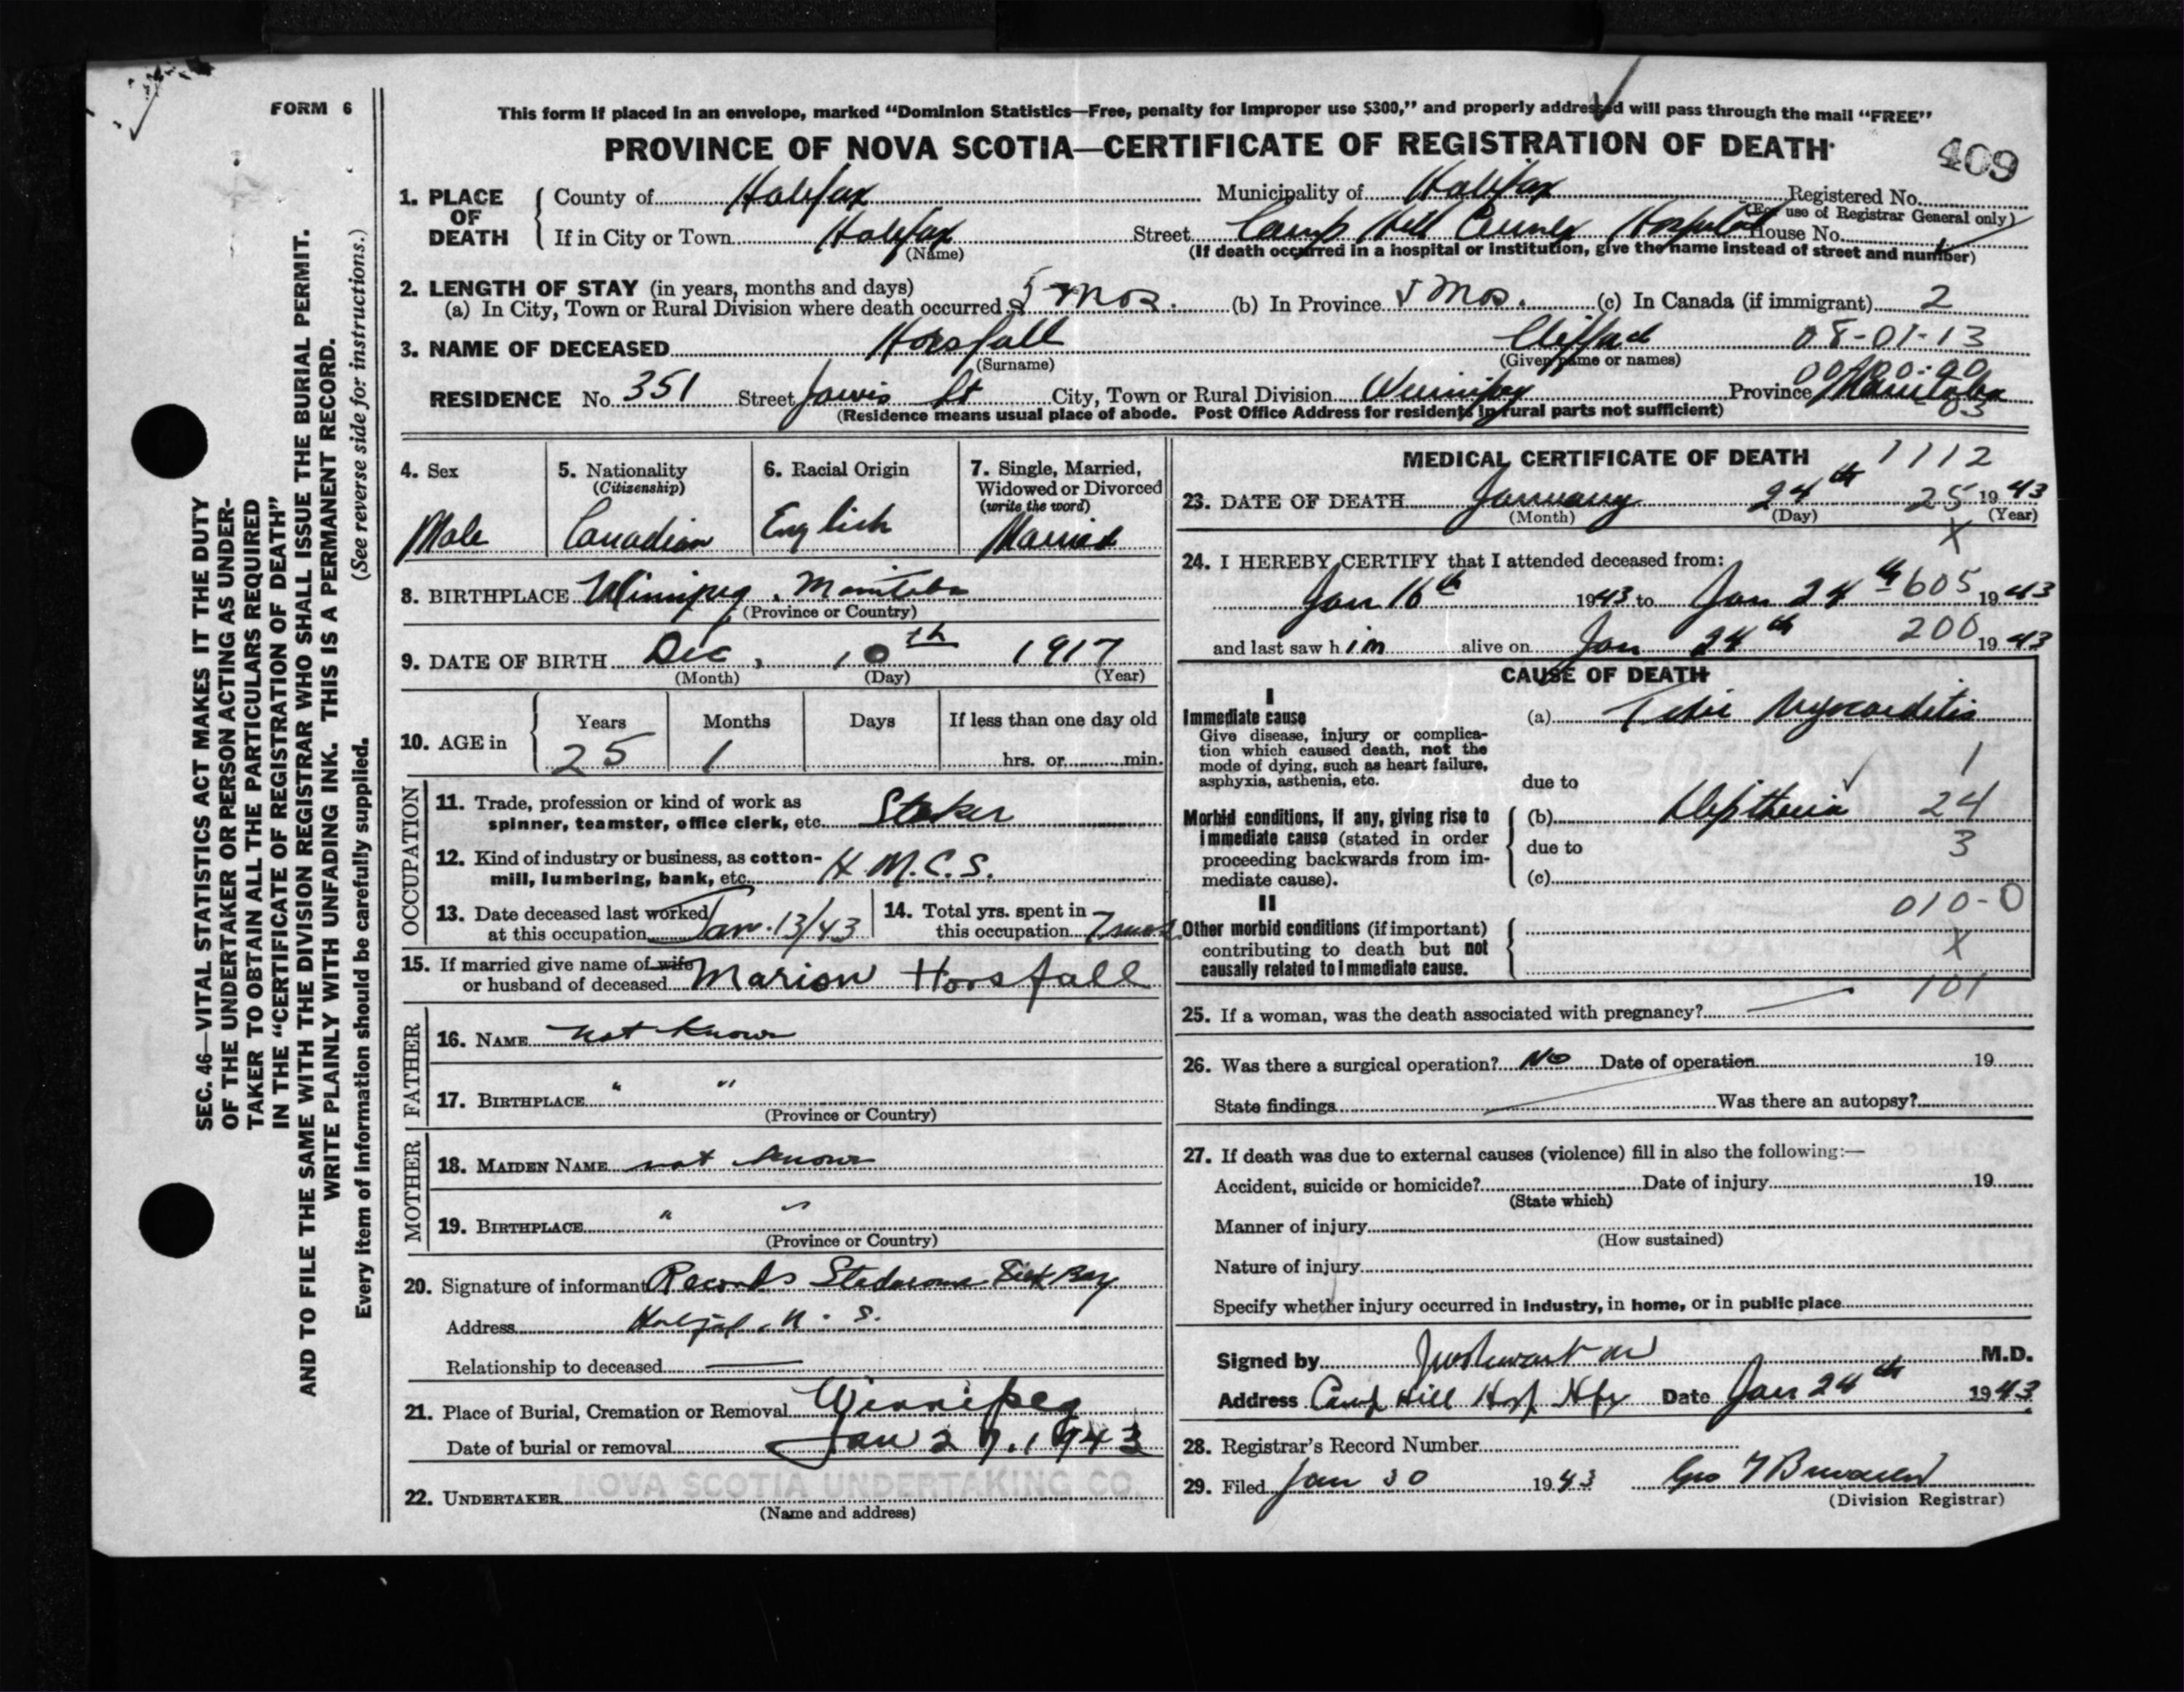 FORM 6
This form if placed in an envelope, marked “Dominion Statistics—Free, penalty for improper use $300,” and properly addressed will pass through the mail “FREE”
PROVINCE OF NOVA SCOTIA—CERTIFICATE OF REGISTRATION OF DEATH
409
1. PLACE OF DEATH County of Halifax Municipality of Halifax Registered No.
(For use of Registrar General only)
If in City or Town Halifax Street Camp Hill Hospital House No.
(Name) (If death occurred in a hospital or institution, give the name instead of street and number)
2. LENGTH OF STAY (in years, months and days)
(a) In City, Town or Rural Division where death occurred 5 mos. (b) In Province 5 mos. (c) In Canada (if immigrant) 2
3. NAME OF DECEASED Horsfall Clifford 08-01-13
(Surname) (Given name or names)
RESIDENCE No. 351 Street Jarvis St City, Town or Rural Division Winnipeg Province Manitoba
03
(Residence means usual place of abode. Post Office Address for residents in rural parts not sufficient)
4. Sex
Male
5. Nationality
(Citizenship)
Canadian
6. Racial Origin
English
7. Single, Married,
Widowed or Divorced
(write the word)
Married
8. BIRTHPLACE Winnipeg, Manitoba
(Province or Country)
9. DATE OF BIRTH Dec, 10th 1917
(Month) (Day) (Year)
10. AGE in Years Months Days If less than one day old
25 1 hrs. or min.
OCCUPATION
11. Trade, profession or kind of work as
spinner, teamster, office clerk, etc. Stoker
12. Kind of industry or business, as cotton-
mill, lumbering, bank, etc. H.M.C.S.
13. Date deceased last worked
at this occupation Jan. 13/43
14. Total yrs. spent in
this occupation 7 mos
15. If married give name of wife
or husband of deceased Marion Horsfall
FATHER
16. NAME not known
17. BIRTHPLACE " "
(Province or Country)
MOTHER
18. MAIDEN NAME not known
19. BIRTHPLACE " "
(Province or Country)
20. Signature of informant Records Stadacona Sick Bay
Address Halifax, N. S.
Relationship to deceased —
21. Place of Burial, Cremation or Removal Winnipeg
Date of burial or removal Jan 27, 1943
22. UNDERTAKER NOVA SCOTIA UNDERTAKING CO.
(Name and address)
MEDICAL CERTIFICATE OF DEATH 1112
23. DATE OF DEATH January 24th 25 1943
(Month) (Day) (Year)
X
24. I HEREBY CERTIFY that I attended deceased from:
Jan 16th 1943 to Jan 24th 605 1943
and last saw him alive on Jan 24th 200 1943
CAUSE OF DEATH
I
Immediate cause
Give disease, injury or complica-
tion which caused death, not the
mode of dying, such as heart failure,
asphyxia, asthenia, etc.
(a) Myocarditis
1
due to
Morbid conditions, if any, giving rise to
immediate cause (stated in order
proceeding backwards from im-
mediate cause).
(b) Diptheria 24
due to 3
(c)
II
010-0
Other morbid conditions (if important)
contributing to death but not
causally related to immediate cause.
X
101
25. If a woman, was the death associated with pregnancy? —
26. Was there a surgical operation? No Date of operation 19
State findings Was there an autopsy?
27. If death was due to external causes (violence) fill in also the following:—
Accident, suicide or homicide? Date of injury 19
(State which)
Manner of injury
(How sustained)
Nature of injury
Specify whether injury occurred in industry, in home, or in public place
Signed by M.D.
Address Camp Hill Hosp Hfx Date Jan 24th 1943
28. Registrar's Record Number
29. Filed Jan 30 1943 Geo
(Division Registrar)
SEC. 46—VITAL STATISTICS ACT MAKES IT THE DUTY
OF THE UNDERTAKER OR PERSON ACTING AS UNDER-
TAKER TO OBTAIN ALL THE PARTICULARS REQUIRED
IN THE “CERTIFICATE OF REGISTRATION OF DEATH”
AND TO FILE THE SAME WITH THE DIVISION REGISTRAR WHO SHALL ISSUE THE BURIAL PERMIT.
WRITE PLAINLY WITH UNFADING INK. THIS IS A PERMANENT RECORD.
Every item of information should be carefully supplied. (See reverse side for instructions.)